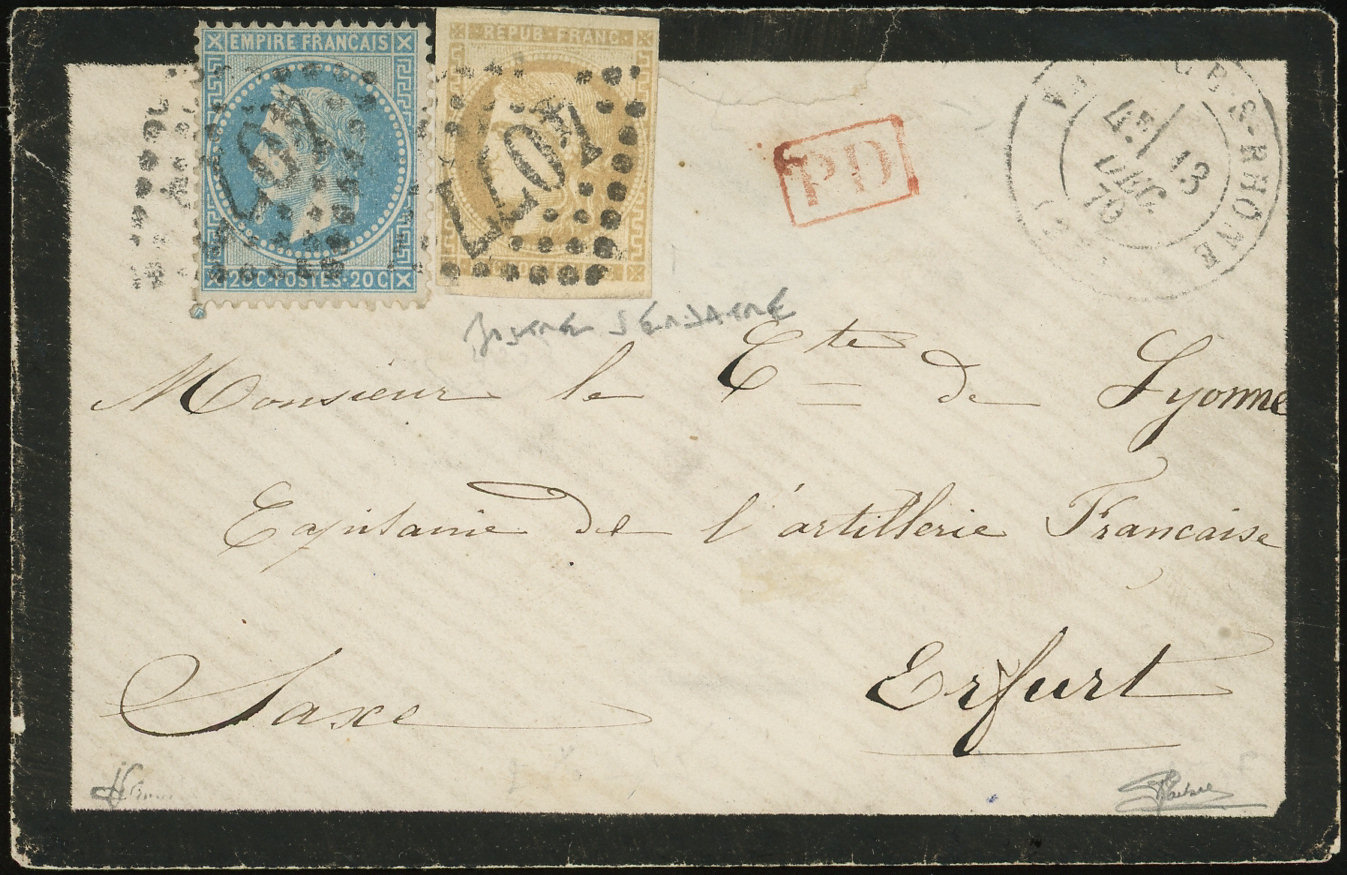 EMPIRE FRANCAIS
20C·POSTES·20C
REPUB·FRANC
4077
4077
PD
B-S-RHONE
4E 13
DEC.
70
Monsieur le Cte de Lyonne
Capitaine de l'artillerie Francaise
Erfurt
Saxe